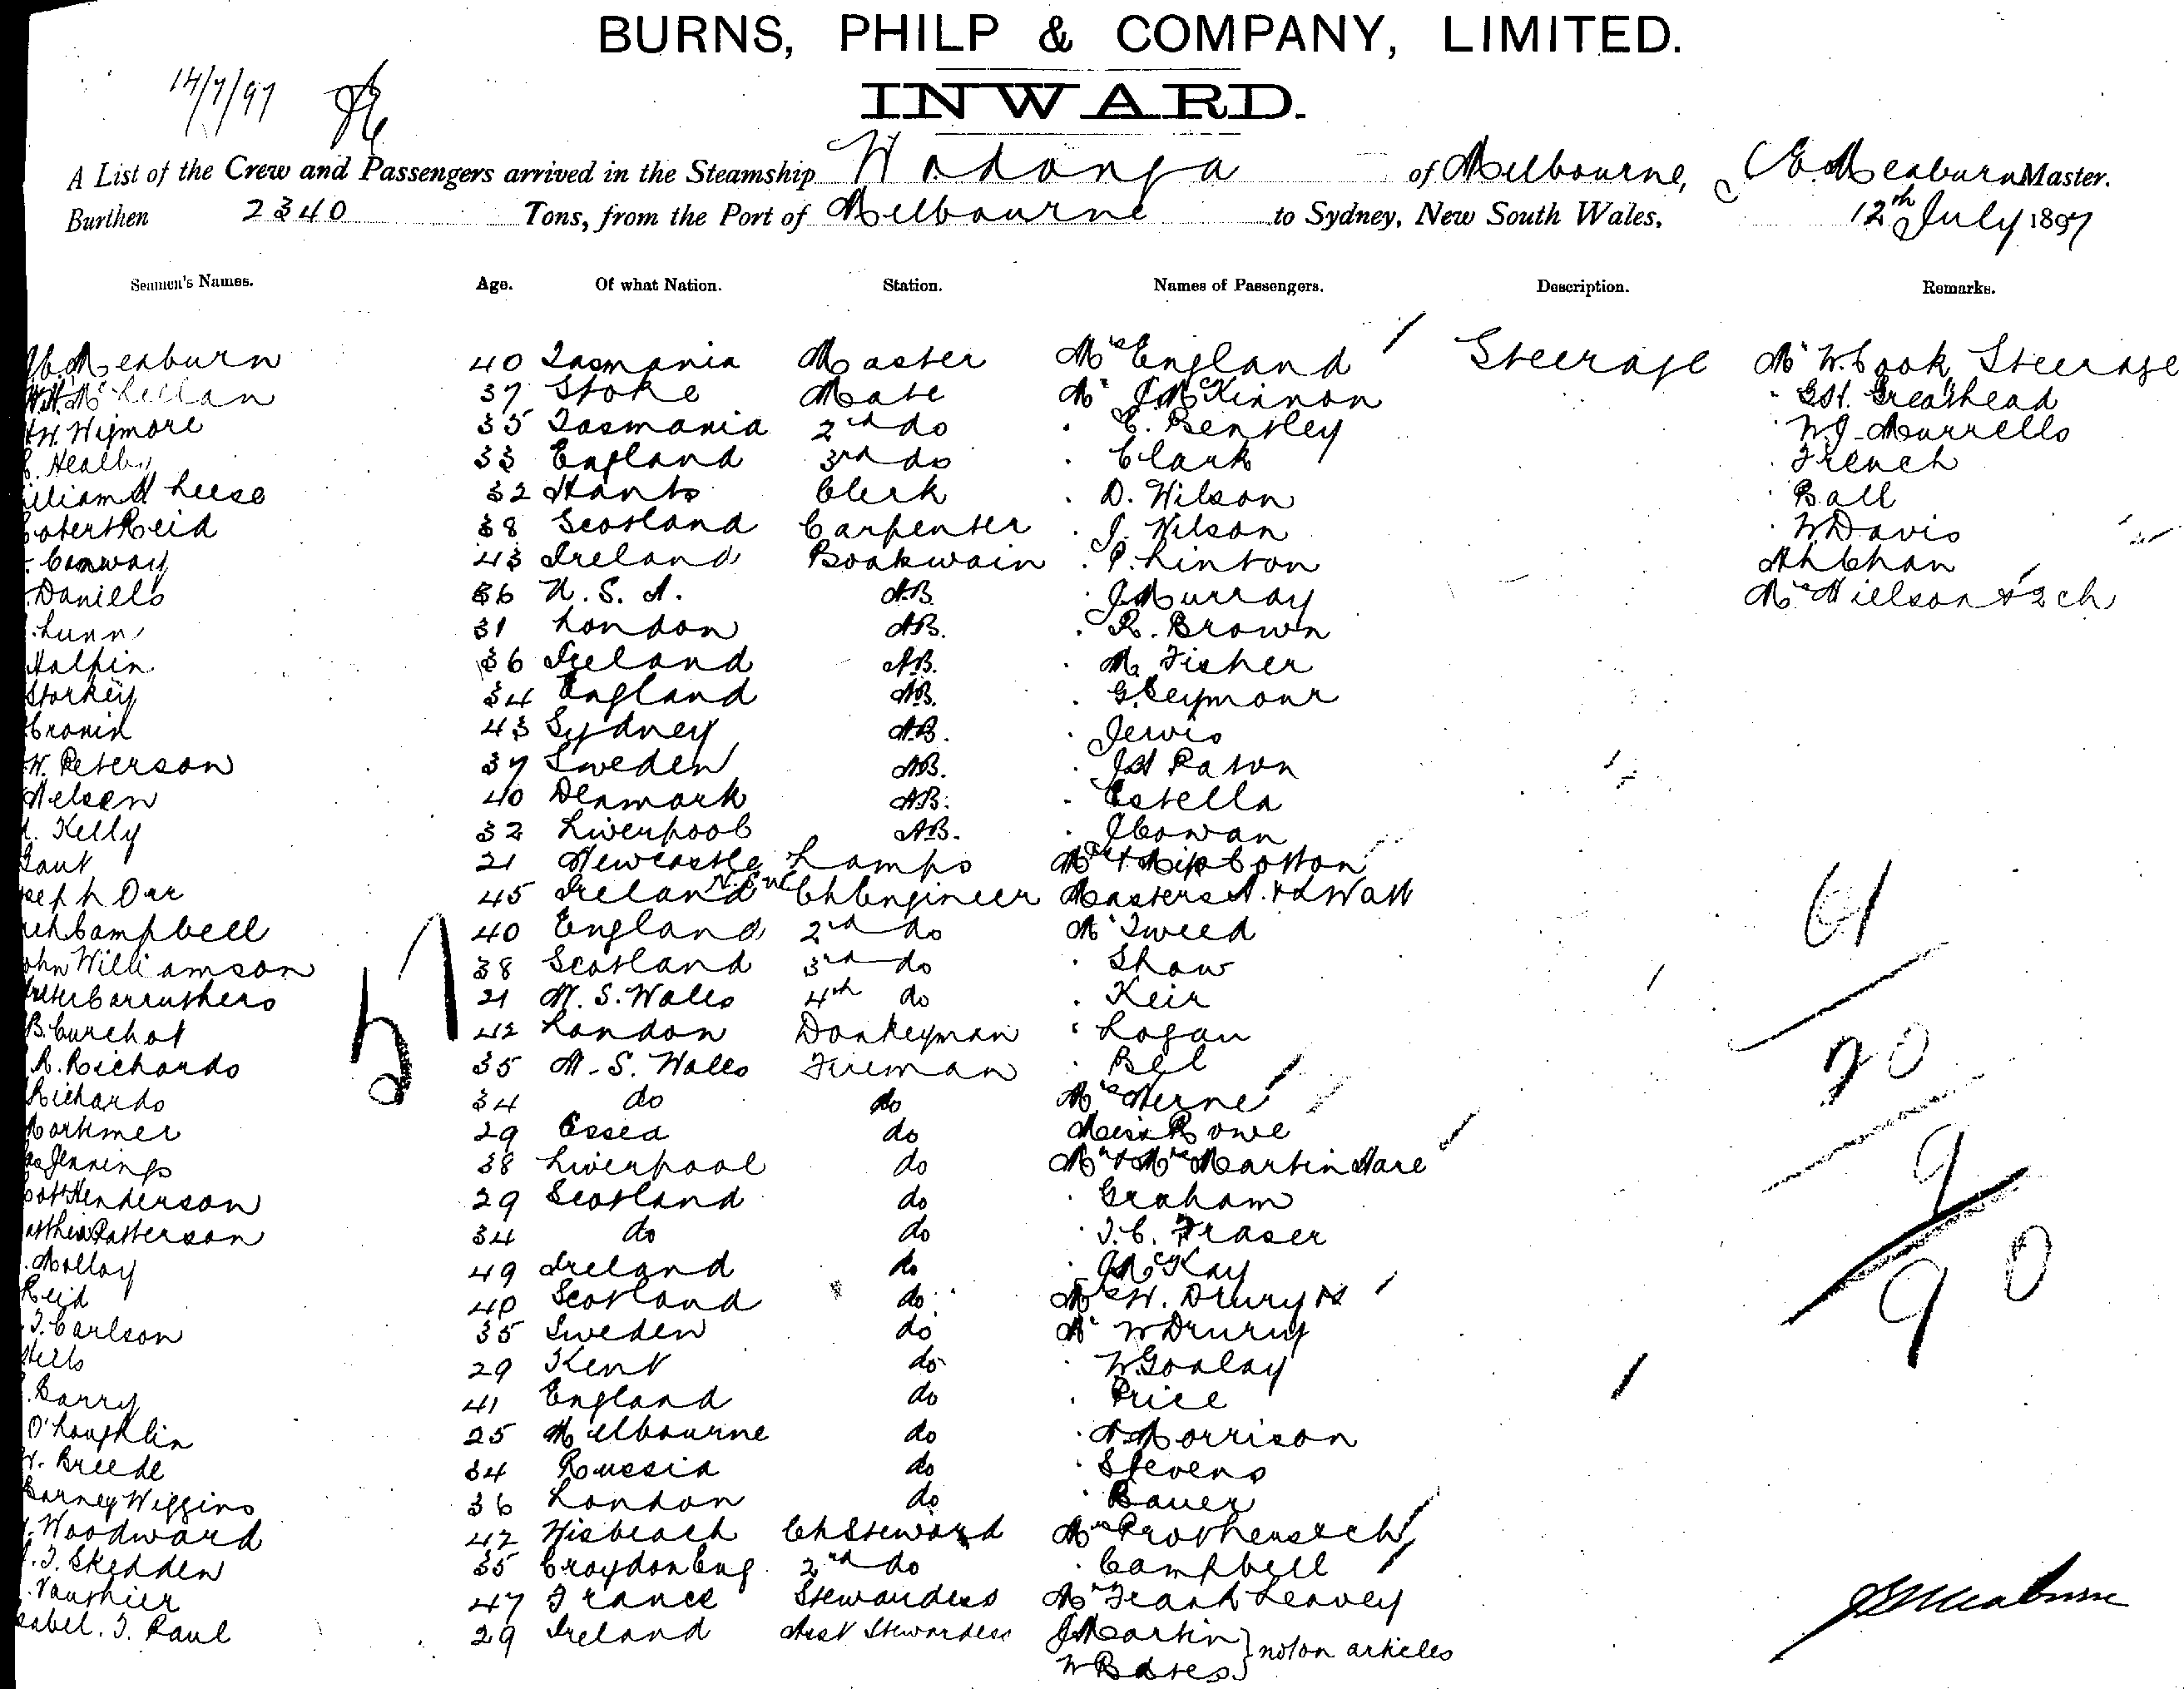 BURNS, PHILP & COMPANY, LIMITED.
14/7/97
INWARD.
A List of the Crew and Passengers arrived in the Steamship Wodonga of Melbourne, Meaburn Master.
Burthen 2340 Tons, from the Port of Melbourne to Sydney, New South Wales, 12th July 1897
Seamen's Names. Age. Of what Nation. Station. Names of Passengers. Description. Remarks.
Meaburn 40 Tasmania Master Mrs England Steerage Mr W. Cook Steerage
McLellan 37 Stoke Mate Mr J McKinnon Greathead
W. Wigmore 35 Tasmania 2nd do E. Bentley W J Murrells
33 England 3rd do Clark French
Leese 32 Hants Clerk D. Wilson Ball
Reid 38 Scotland Carpenter J. Wilson W Davis
Conway 43 Ireland Boatswain P. Linton Ah Chan
Daniels 36 U. S. A. AB. J Murray Mrs Nielson & 2 ch
Lunn 31 London AB. R. Brown
Halpin 36 Ireland AB. M. Fisher
Storkey 34 England AB. G Seymour
Cronin 43 Sydney AB. Jervis
W. Peterson 37 Sweden AB. J H Paton
Nelsen 40 Denmark AB. Estella
Kelly 32 Liverpool AB. J Cowan
Gaut 21 Newcastle N.S.W. Lamps
seph Orr 45 Ireland Ch Engineer Masters A. & L Watt
Campbell 40 England 2nd do Mr Tweed
ohn Williamson 38 Scotland 3rd do Shaw
Carruthers 21 N. S. Wales 4th do Keir
B. Curchot 42 London Donkeyman Logan
R. Richards 35 N. S. Wales Fireman Bel
Richards 34 do do Mrs Herne
Mortimer 29 Essex do Miss Rowe
Jennings 38 Liverpool do Mr & Mrs Martin Hare
Henderson 29 Scotland do Graham
Patterson 34 do do T. C. Fraser
Molloy 49 Ireland do J McKay
Reid 40 Scotland do Mrs W. Drury
T. Carlson 35 Sweden do Mr W Drury
29 Kent do W Goalay
Barry 41 England do Price
O'Loughlin 25 Melbourne do A. Morrison
Breede 34 Russia do Stevens
Barney Wiggins 36 London do Bauer
Woodward 42 Wisbeach Ch Steward Mrs Prothers & ch
T. Skedden 35 Croydon Eng 2nd do Campbell
Vauthier 47 France Stewardess Mr Frank Leavey
sabel. T. Paul 29 Ireland Asst Stewardess J Martin
W Bates } not on articles
61
20
9
90
Meaburn